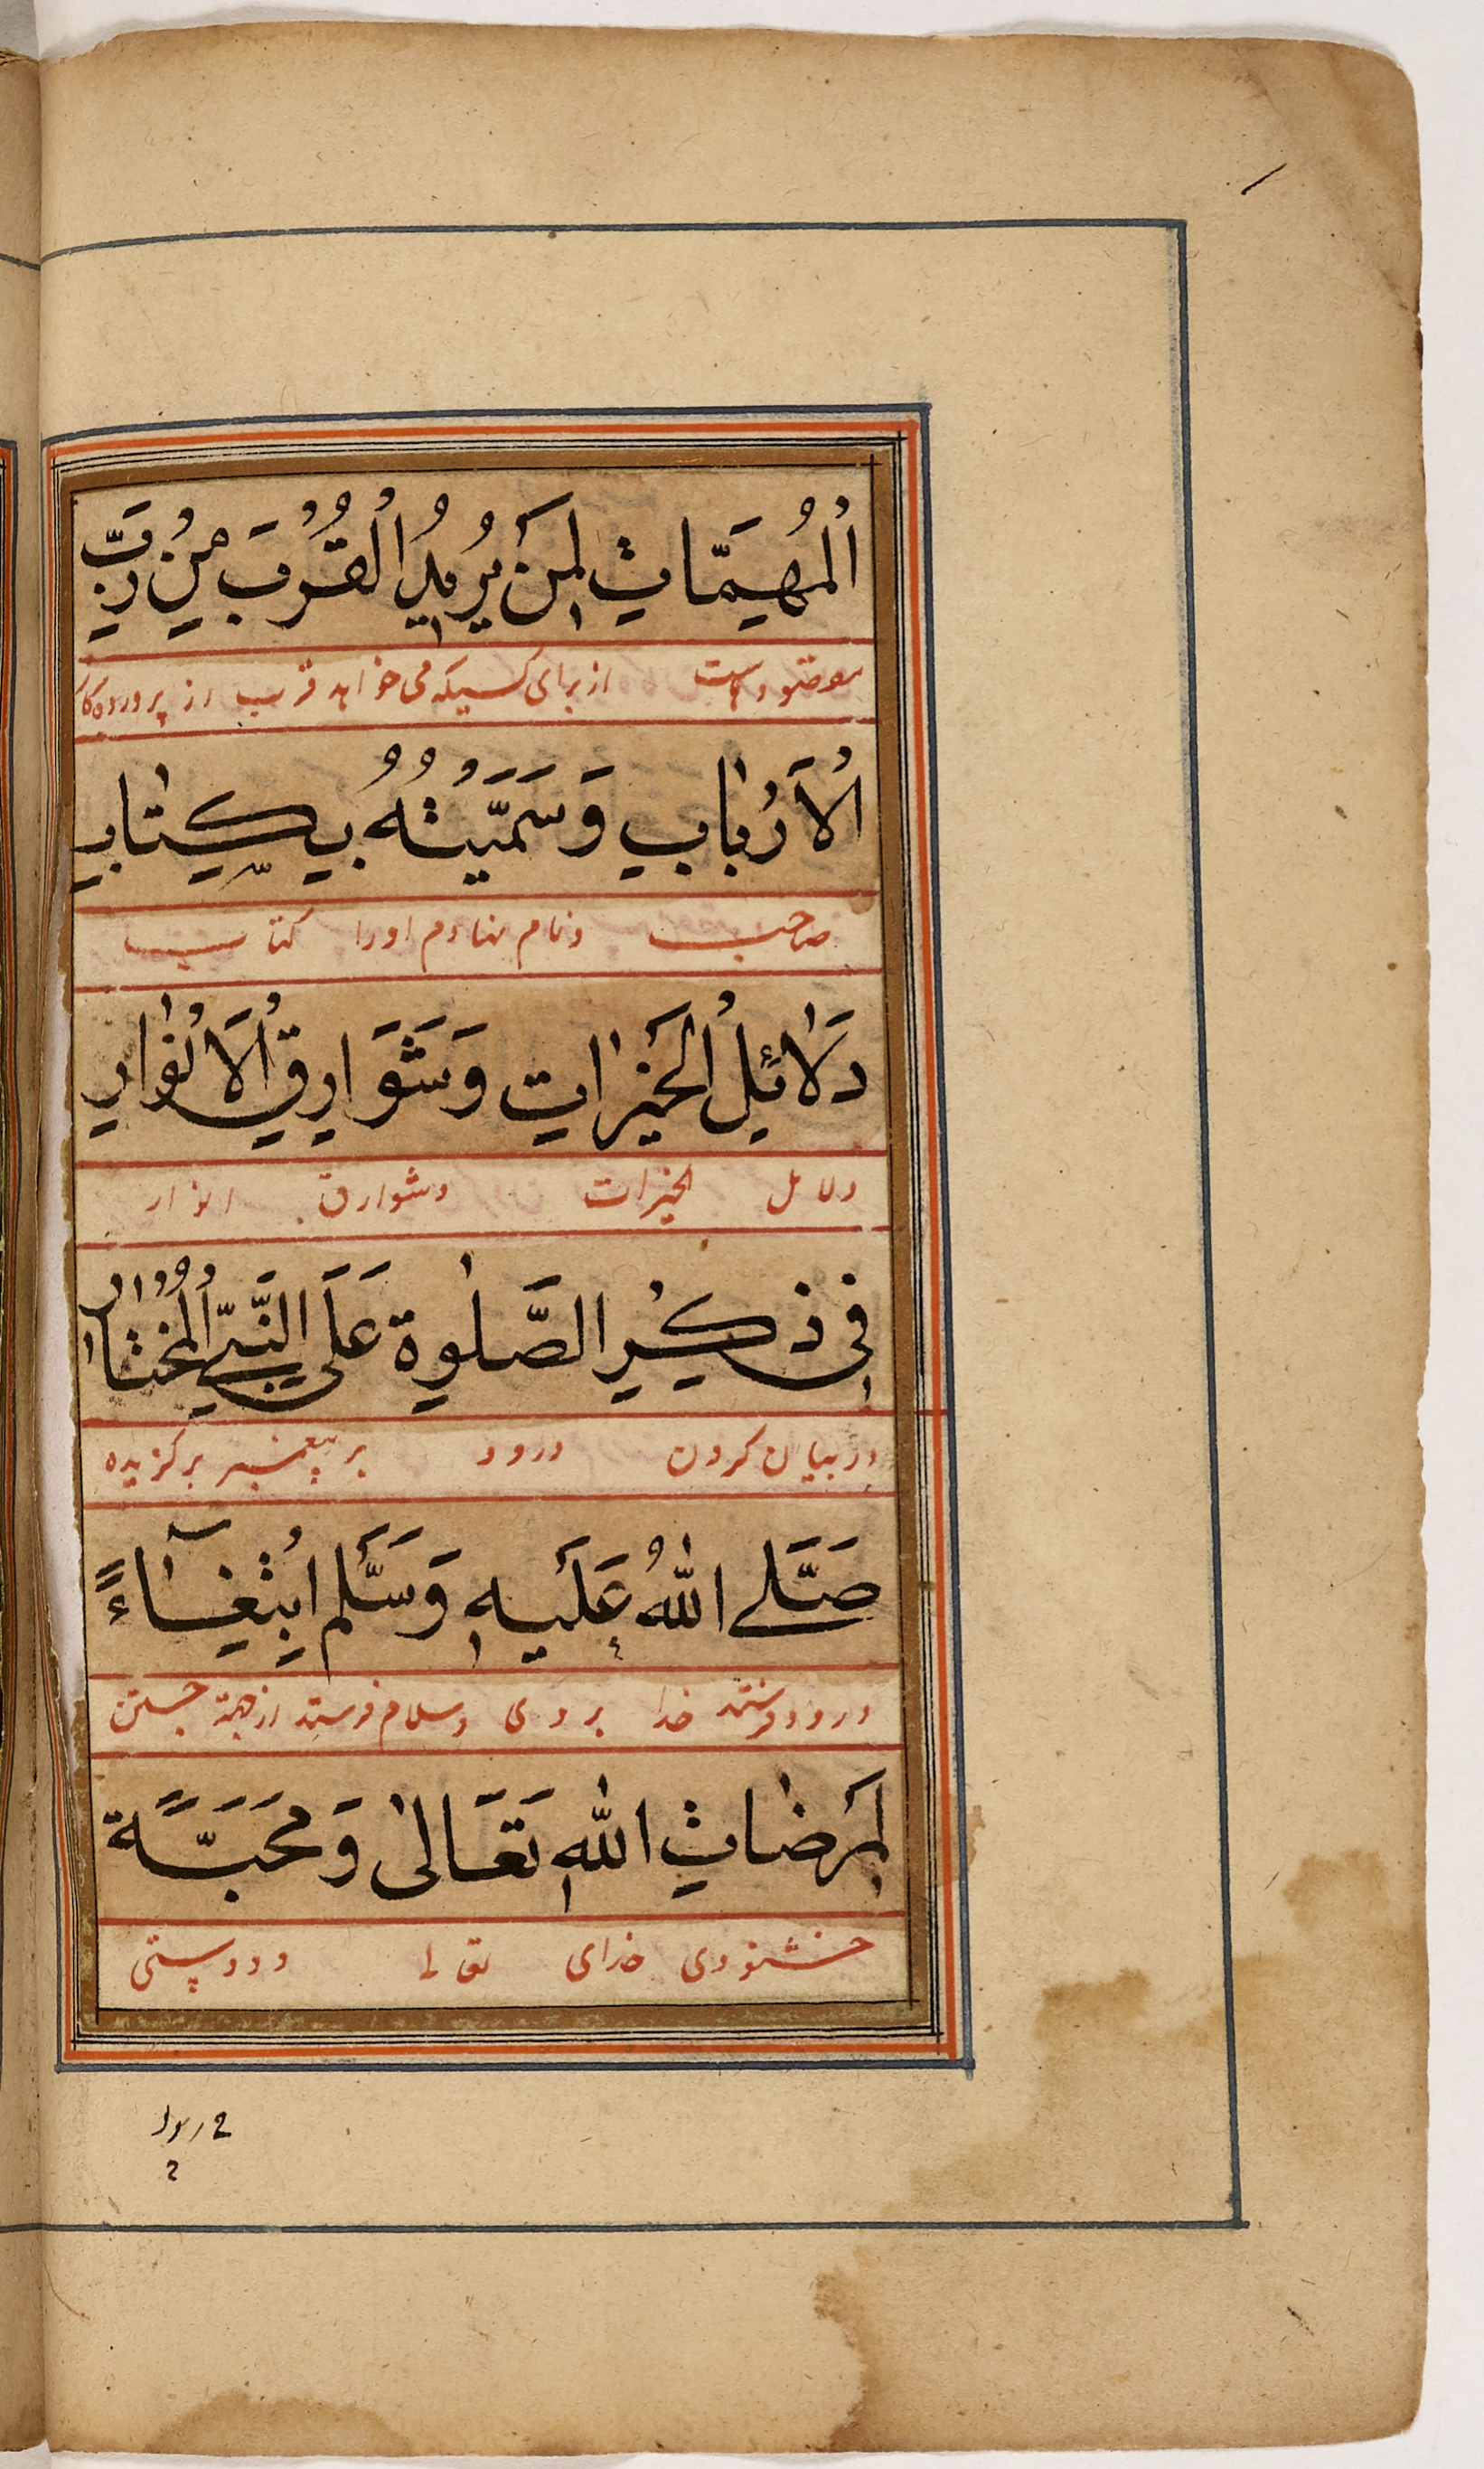 اَلْمُهِمَّاتِ لِمَنْ يُرِيْدُ الْقُرْبَ مِنْ رَبِّ
از برای کسیکه می خواهد قرب از پروردکار
الْاَرْبَابِ وَسَمَّيْتُهُ بِكِتَابِ
صاحب ونام نهادم اورا کتاب
دَلَائِلُ الْخَيْرَاتِ وَشَوَارِقِ الْاَنْوَارِ
دلائل الخیرات وشوارق انوار
فِى ذِكْرِ الصَّلٰوةِ عَلَى النَّبِىِّ الْمُخْتَارِ
در بیان کردن درود بر پیغمبر برکزیده
صَلَّے اللّٰهُ عَلَيْهِ وَسَلَّمَ اِبْتِغَآءً
درود فرستد خدا بر وی وسلام فرستد از جهة جستن
لِمَرْضَاتِ اللّٰهِ تَعَالٰى وَمَحَبَّةً
خشنودی خدای تعالی ودوستی